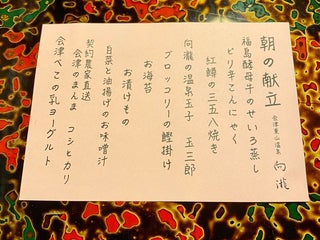 朝の献立
会津東山温泉 向瀧
福島酵母牛のせいろ蒸し
ピリ辛こんにゃく
紅鱒の三五八焼き
向瀧の温泉玉子 玉三郎
ブロッコリーの鰹掛け
お海苔
お漬けもの
白菜と油揚げのお味噌汁
契約農家直送
会津のまんま コシヒカリ
会津べこの乳ヨーグルト